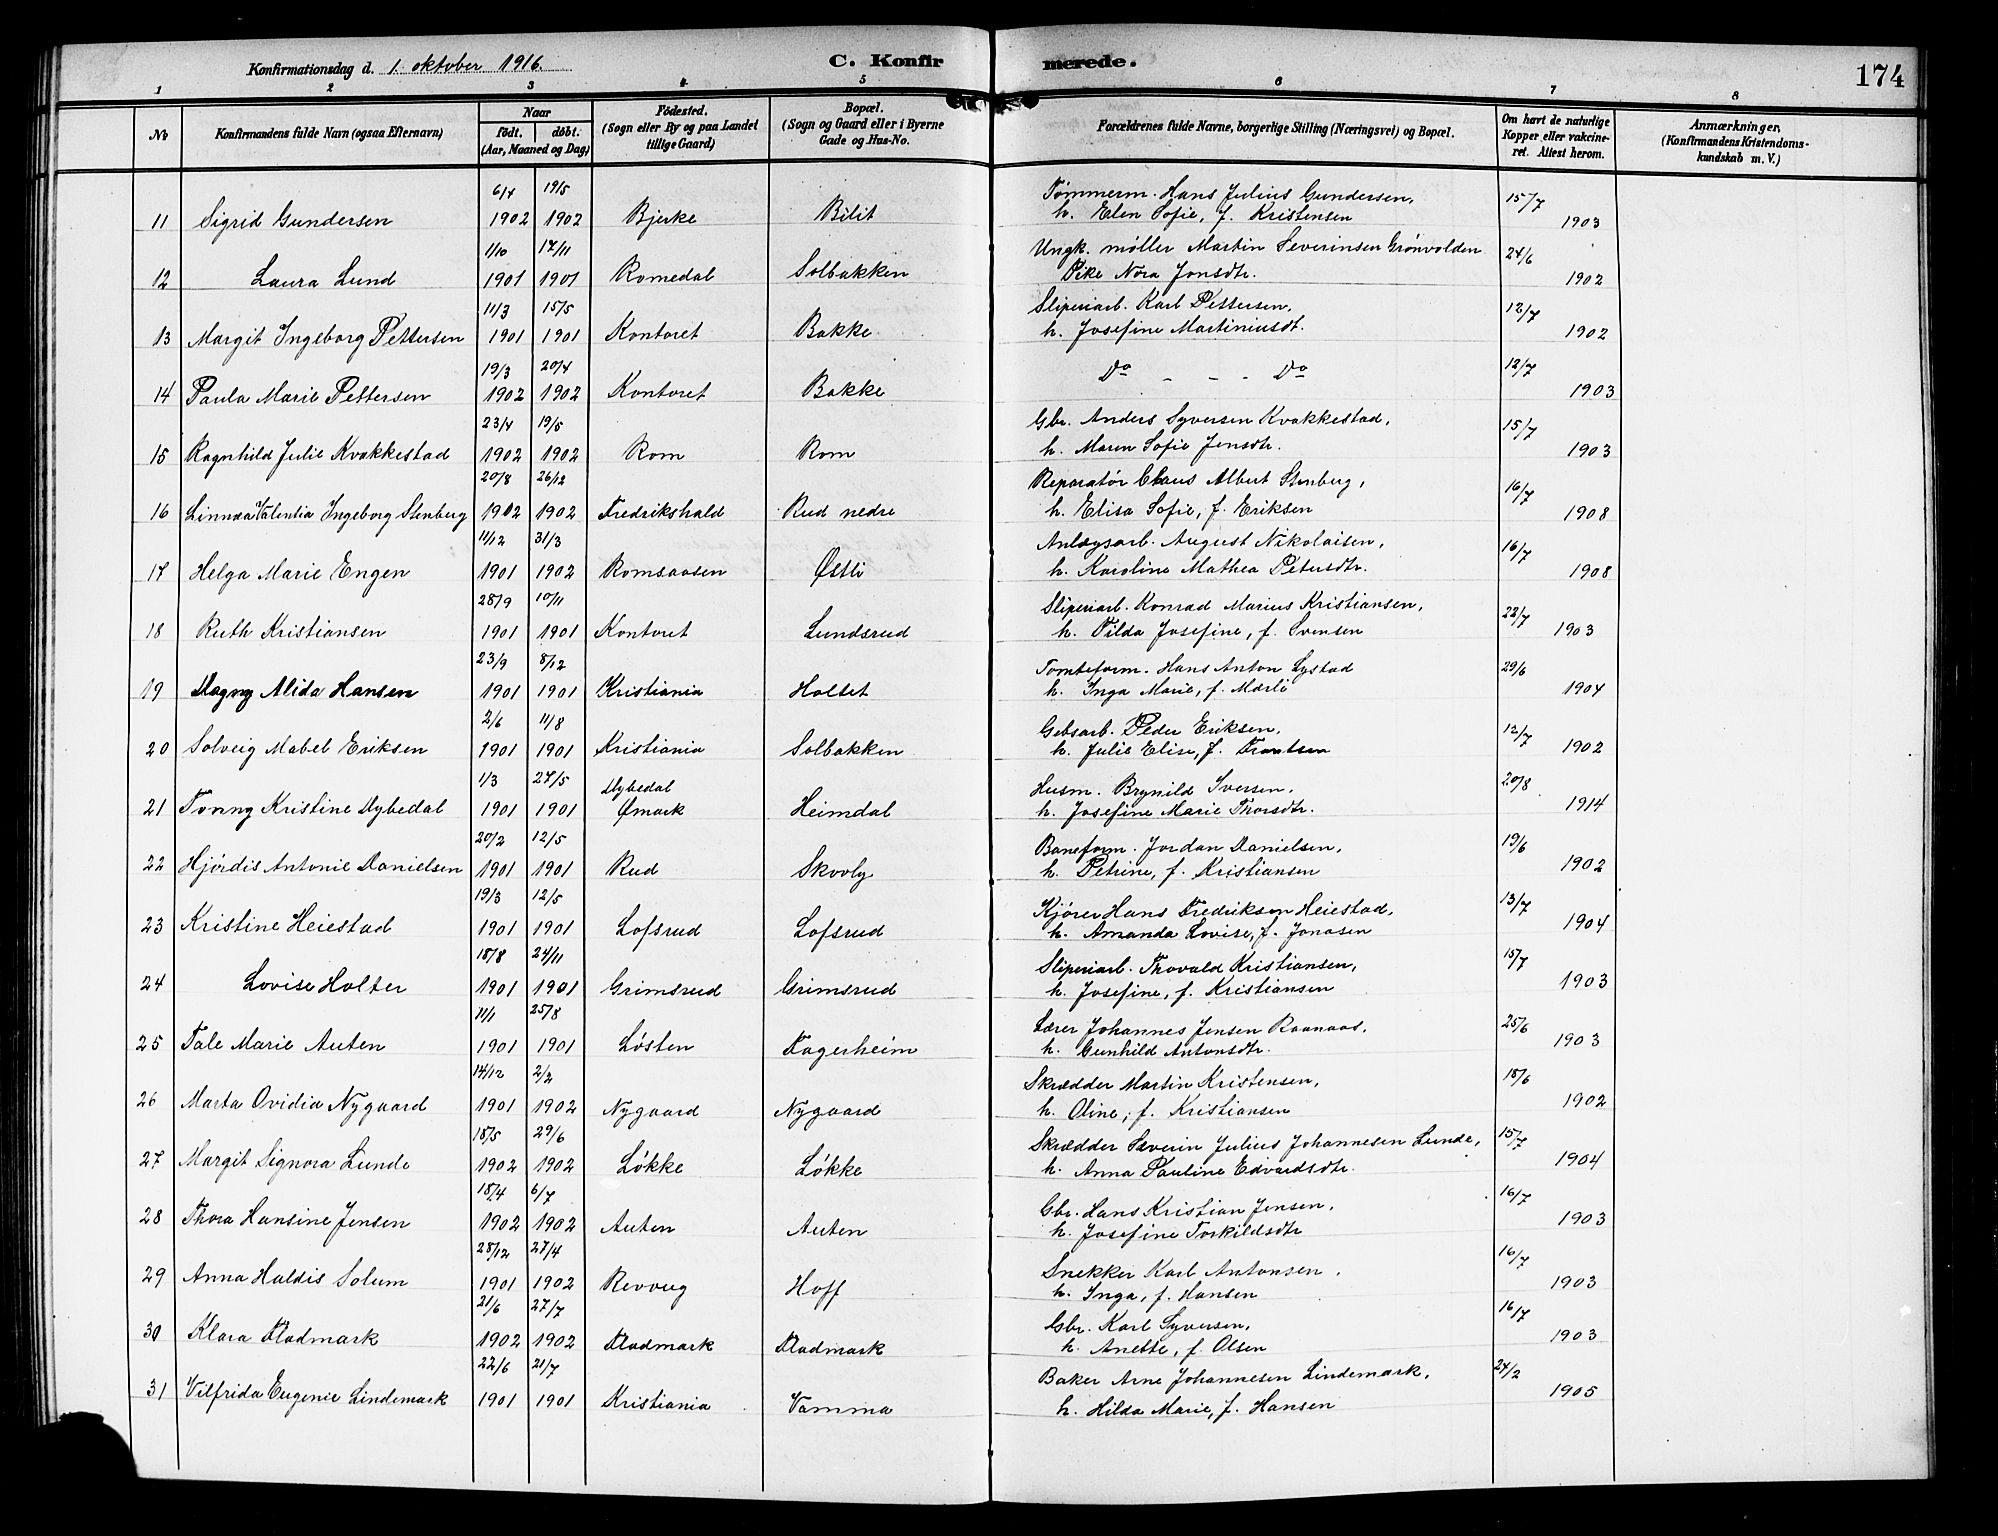 Konfirmationsdag d. 1. oktober 1916. C. Konfirmerede. 174
1 2 3 4 5 6 7 8
No Konfirmandens fulde Navn (ogsaa Efternavn) Naar født. døbt. (Aar, Maaned og Dag) Fødested. (Sogn eller By og paa Landet tillige Gaard) Bopæl. (Sogn og Gaard eller i Byerne Gade og Hus-No. Forældrenes fulde Navne, borgerlige Stilling (Næringsvei) og Bopæl. Om havt de naturlige Kopper eller vakcineret. Attest herom. Anmærkninger, (Konfirmandens Kristendomskundskab m. V.)
6/4 19/5 Tømmerm. Hans Julius Gundersen, 15/7
11 Sigrid Gundersen 1902 1902 Bjerke Bilit h. Elen Sofie, f. Kristensen 1903
1/10 17/11 Ungk. møller Martin Severinsen Grønvolden 24/6
12 Laura Lund 1901 1901 Romedal Solbakken Pike Nora Jonsdtr. 1902
11/3 15/5 Sliperiarb. Karl Pettersen, 12/7
13 Margit Ingeborg Pettersen 1901 1901 Kontoret Bakke h. Josefine Martiniusdt. 1902
19/3 20/4 Do - - - Do 12/7
14 Paula Marie Pettersen 1902 1902 Kontoret Bakke 1903
23/4 19/5 Gbr. Anders Syversen Kvakkestad, 15/7
15 Ragnhild Julie Kvakkestad 1902 1902 Rom Rom h. Maren Sofie Jensdtr. 1903
20/8 26/12 Reparatør Claus Albert Stenberg, 16/7
16 Linnæa Valentia Ingeborg Stenberg 1902 1902 Fredrikshald Rud nedre h. Elisa Sofie, f. Eriksen 1908
11/12 31/3 Anlægsarb. August Nikolaisen, 16/7
17 Helga Marie Engen 1901 1902 Romsaasen Østli h. Karoline Mathea Petersdtr. 1908
28/9 10/11 Sliperiarb. Konrad Marius Kristiansen, 22/7
18 Ruth Kristiansen 1901 1901 Kontoret Lundsrud h. Tilda Josefine, f. Svensen 1903
23/9 8/12 Tomteform. Hans Anton Lystad 29/6
19 Dagny Alida Hansen 1901 1901 Kristiania Holtet h. Inga Marie, f. Mærli 1904
2/6 11/8 Gebsarb. Peder Eriksen, 12/7
20 Solveig Mabel Eriksen 1901 1901 Kristiania Solbakken h. Julie Elise, f. Frantsen 1902
1/3 27/5 Dybedal Husm. Brynild Iversen, 20/8
21 Tonny Kristine Dybedal 1901 1901 Ømark Heimdal h. Josefine Marie Thorsdtr. 1914
20/2 12/5 Baneform. Jordan Danielsen, 19/6
22 Hjørdis Antonie Danielsen 1901 1901 Rud Skovly h. Petrine, f. Kristiansen 1902
19/3 12/5 Kjører Hans Fredriksen Heiestad, 13/7
23 Kristine Heiestad 1901 1901 Lofsrud Lofsrud h. Amanda Lovise, f. Jonasen 1904
18/8 24/11 Sliperiarb. Thovald Kristiansen, 15/7
24 Lovise Holter 1901 1901 Grimsrud Grimsrud h. Josefine, f. Kristiansen 1903
11/1 25/8 Lærer Johannes Jensen Raanaas, 25/6
25 Tale Marie Auten 1901 1901 Løsten Fagerheim h. Gunhild Antonsdtr. 1903
14/12 2/2 Skrædder Martin Kristensen, 18/6
26 Marta Ovidia Nygaard 1901 1902 Nygaard Nygaard h. Oline, f. Kristiansen 1902
18/5 29/6 Skrædder Severin Julius Johannesen Lunde, 15/7
27 Margit Signora Lunde 1902 1902 Løkke Løkke h. Anna Pauline Edvardsdtr. 1904
18/4 6/7 Gbr. Hans Kristian Jensen, 16/7
28 Thora Hansine Jensen 1902 1902 Auten Auten h. Josefine Torkildsdtr 1903
28/12 27/4 Snekker Karl Antonsen, 16/7
29 Anna Haldis Solum 1901 1902 Revoug Hoff h. Inga, f. Hansen 1903
21/6 27/7 Gbr. Karl Syversen, 16/7
30 Klara Fladmark 1902 1902 Fladmark Fladmark h. Anette, f. Olsen 1903
22/6 21/7 Baker Arne Johannesen Lindemark, 24/2
31 Vilfrida Eugenie Lindemark 1901 1901 Kristiania Vamma h. Hilda Marie, f. Hansen 1905